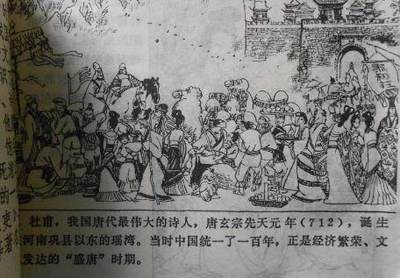 杜甫，我国唐代最伟大的诗人，唐玄宗先天元年（712），诞生
河南巩县以东的瑶湾。当时中国统一了一百年，正是经济繁荣、文
发达的“盛唐”时期。